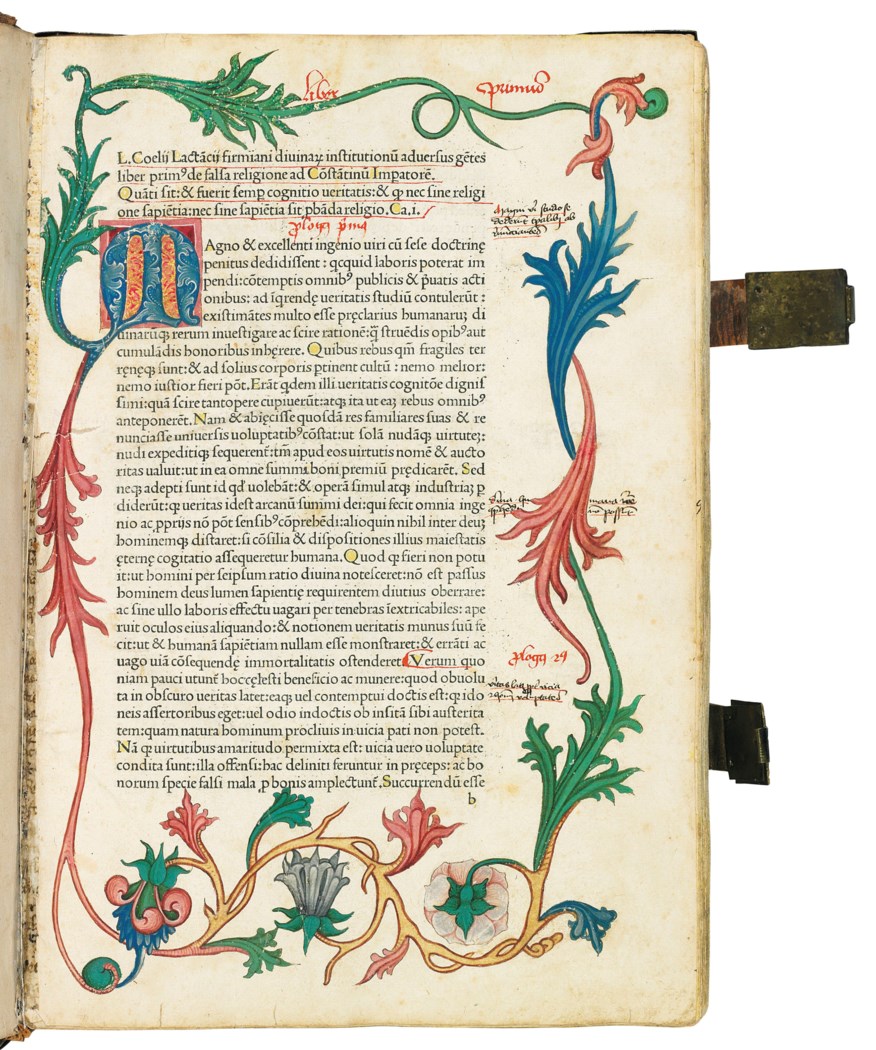 liber primus
L. Coelij Lactãcij firmiani diuinaꝝ institutionũ aduersus gẽtes
liber primꝰ de falsa religione ad Cõstãtinũ Impatorẽ.
Quãti sit: & fuerit semp cognitio ueritatis: & ꝙ nec sine religi
one sapiẽtia: nec sine sapiẽtia sit pbãda religio. Ca. i.
MAgno & excellenti ingenio uiri cũ sese doctrinę
penitus dedidissent: qcquid laboris poterat im
pendi: cõtemptis omnibꝰ publicis & puatis acti
onibus: ad iqrendę ueritatis studiũ contulerũt:
existimãtes multo esse pręclarius humanaꝝ di
uinaruꝗ rerum inuestigare ac scire rationẽ: q̃ struẽdis opibꝰ aut
cumulãdis honoribus inhęrere. Quibus rebus qm̃ fragiles ter
ręnęꝗ sunt: & ad solius corporis ptinent cultũ: nemo melior:
nemo iustior fieri põt. Erãt qdem illi ueritatis cognitõe dignis
simi: quã scire tantopere cupiuerũt: atꝗ ita ut eaꝫ rebus omnibꝰ
anteponerẽt. Nam & abięcisse quosdã res familiares suas & re
nunciasse uniuersis uoluptatibꝰ cõstat: ut solã nudãꝗ uirtuteꝫ:
nudi expeditiꝗ sequerenť: tm̃ apud eos uirtutis nomẽ & aucto
ritas ualuit: ut in ea omne summi boni premiũ prędicarẽt. Sed
neꝗ adepti sunt id qđ uolebãt: & operã simul atꝗ industriaꝫ p
diderũt: ꝗ ueritas idest arcanũ summi dei: qui fecit omnia inge
nio ac pprijs nõ põt sensibꝰ cõprehẽdi: alioquin nihil inter deuꝫ
hominemꝗ distaret: si cõsilia & dispositiones illius maiestatis
ęternę cogitatio assequeretur humana. Quod ꝗ fieri non potu
it: ut homini per seipsum ratio diuina notesceret: nõ est passus
hominem deus lumen sapientię requirentem diutius oberrare:
ac sine ullo laboris effectu uagari per tenebras ĩextricabiles: ape
ruit oculos eius aliquando: & notionem ueritatis munus suũ fe
cit: ut & humanã sapiẽtiam nullam esse monstraret: & errãti ac
uago uiã cõsequendę immortalitatis ostenderet. Verum quo
niam pauci utunť hoc cęlesti beneficio ac munere: quod obuolu
ta in obscuro ueritas latet: eaꝗ uel contemptui doctis est: ꝗ ido
neis assertoribus eget: uel odio indoctis ob insitã sibi austerita
tem: quam natura hominum procliuis in uicia pati non potest.
Nã ꝗ uirtutibus amaritudo permixta est: uicia uero uoluptate
condita sunt: illa offensi: hac deliniti feruntur in pręceps: ac bo
norum specie falsi mala p bonis amplectunť. Succurrendũ esse
b